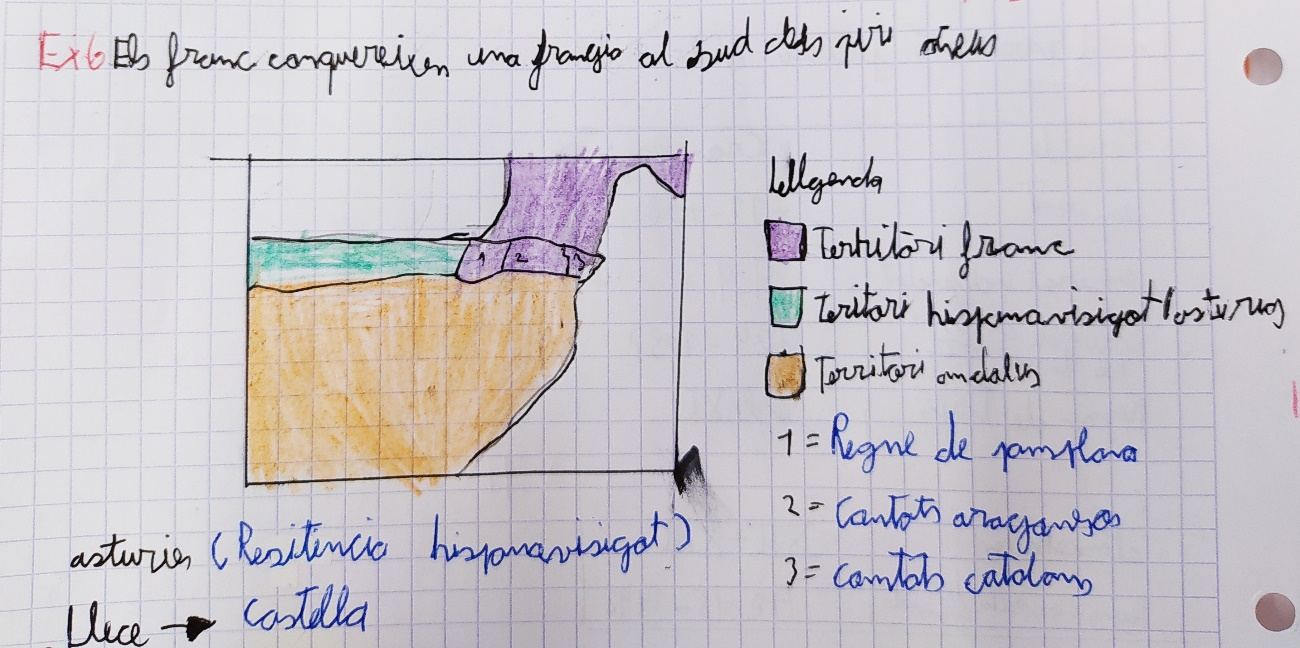 Ex6 Els franc conquereixen una frangia al sud dels piri
1
2
3
Lellgenda
Territòri franc
Teritori hispanavisigot/asturies
Territori andalus
1 = Regne de pamplona
2 = Contats aragonesos
3 = comtats catalans
asturies (Resitencia hispanavisigot)
→ Castella